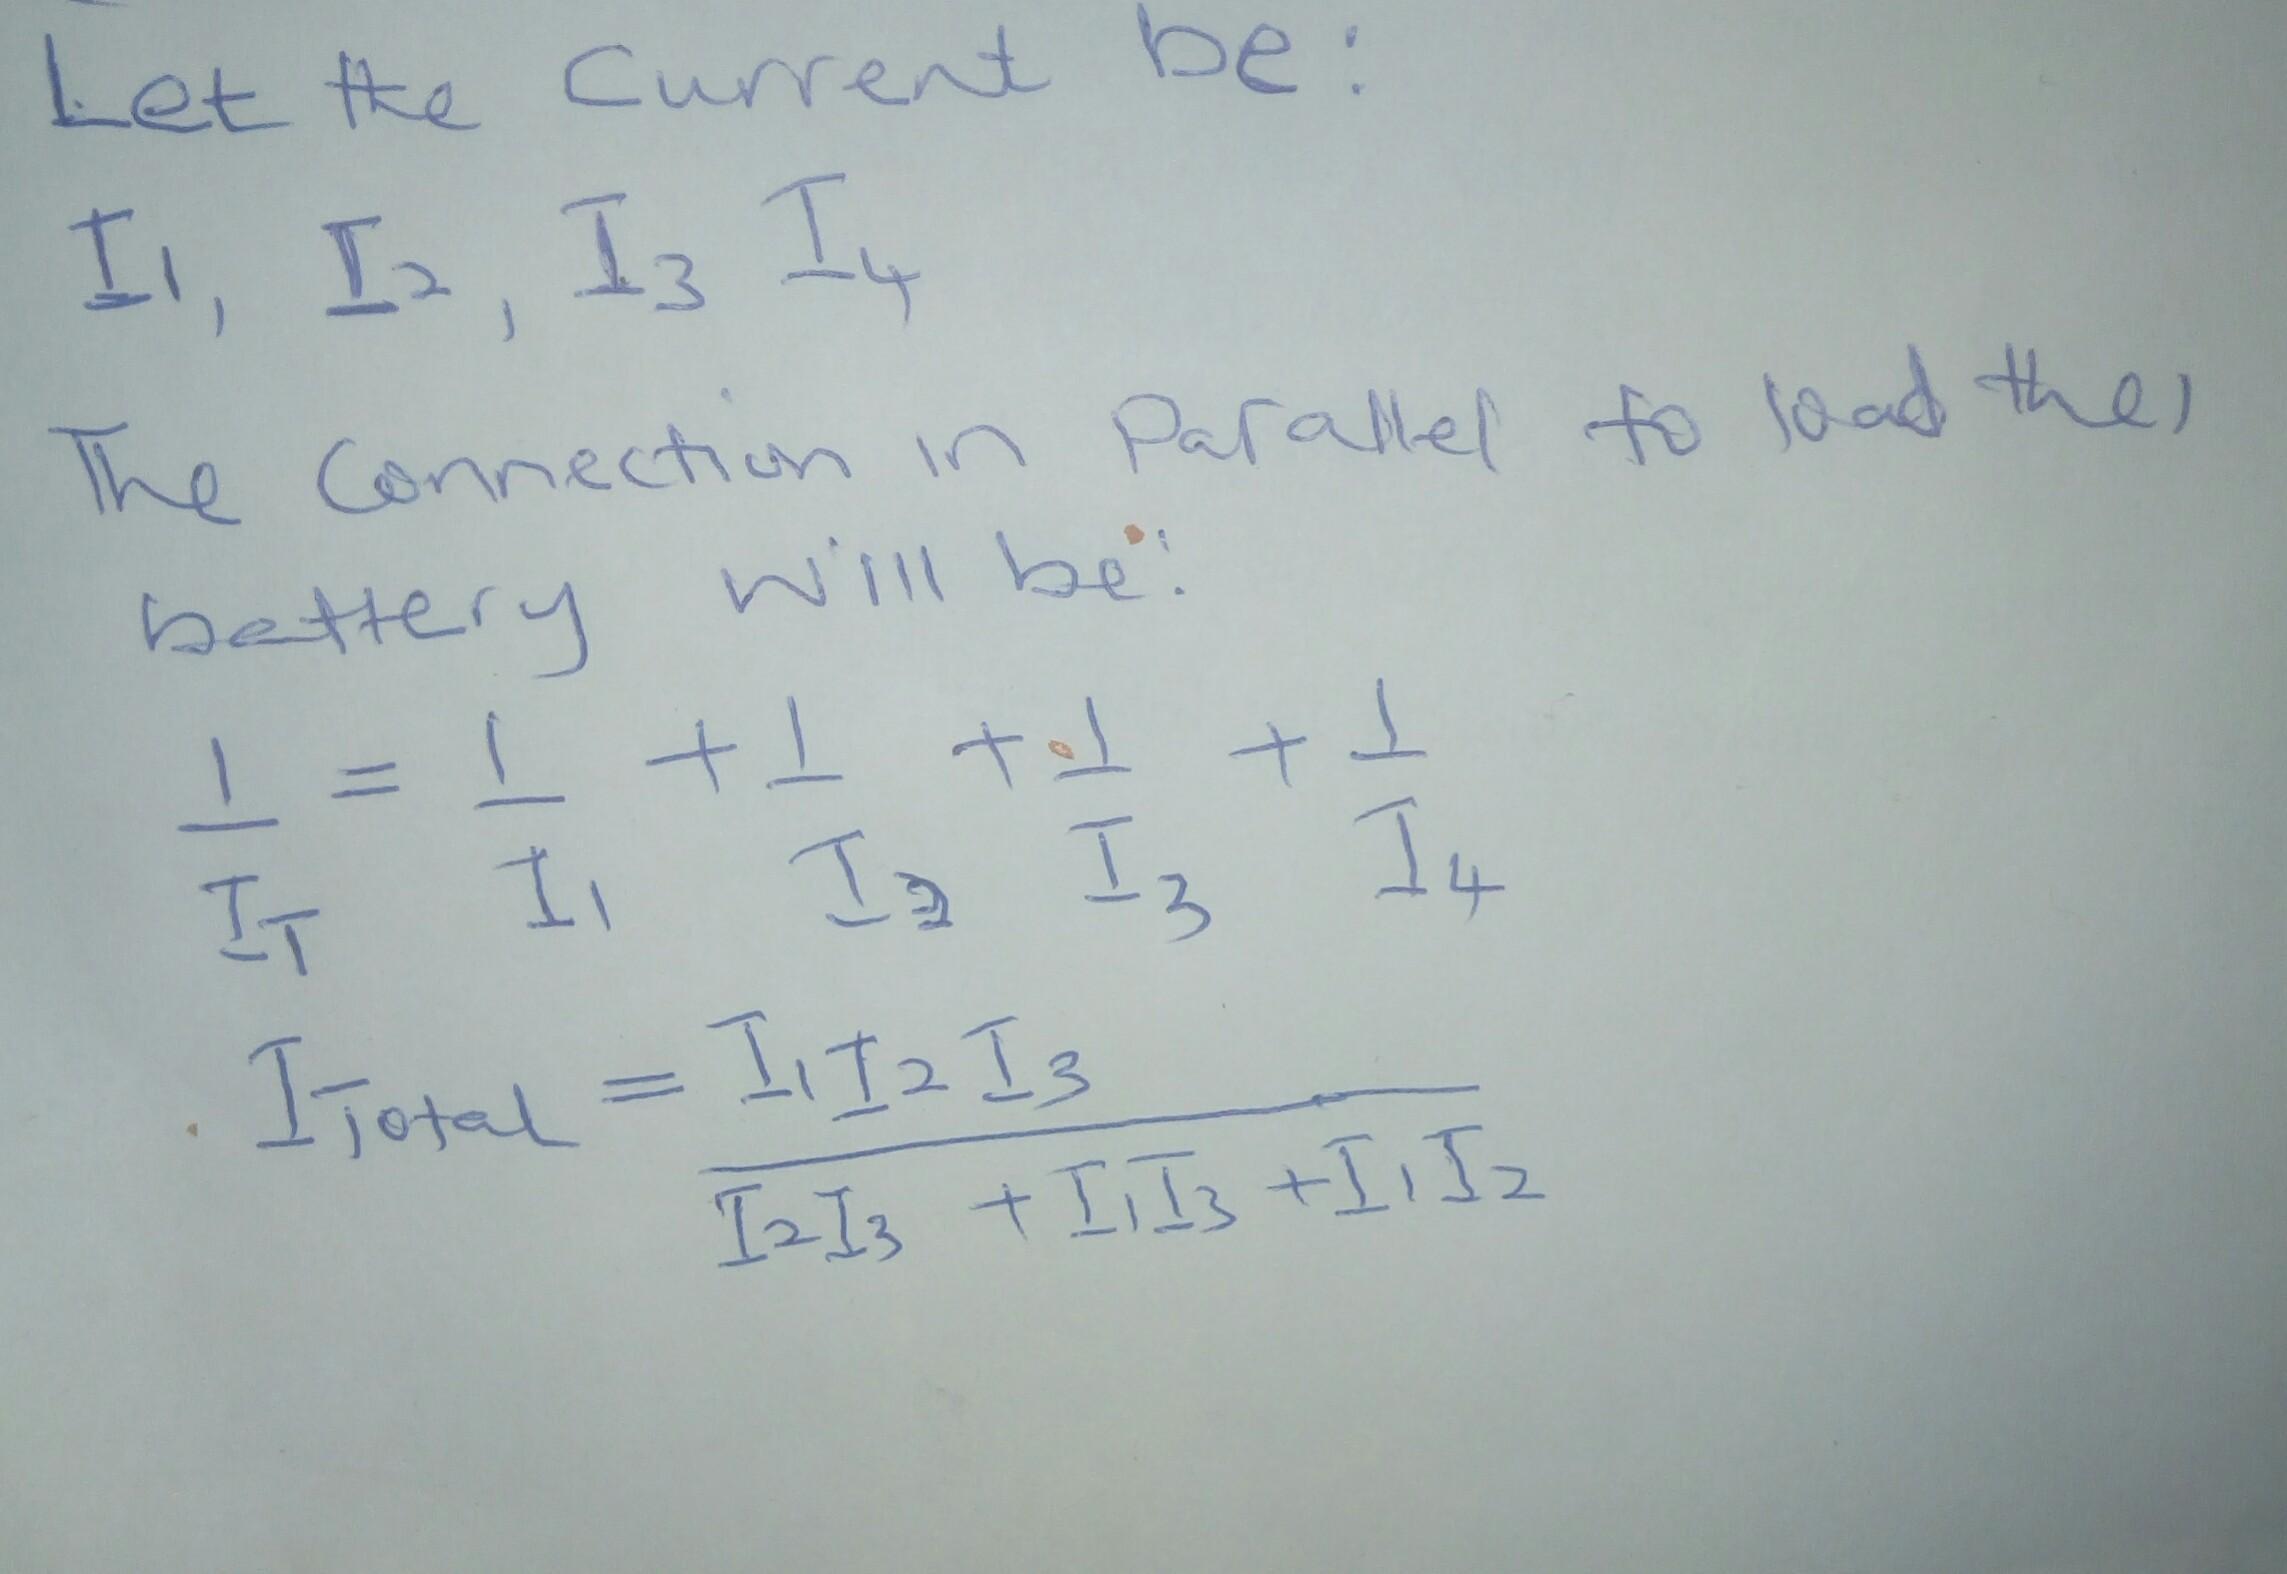 Let the Current be:
I1, I2, I3 I4
The Connection in Parallel to load the
battery will be:
1/IT = 1/I1 + 1/I2 + 1/I3 + 1/I4
ITotal = I1I2I3 / I2I3 + I1I3 + I1I2